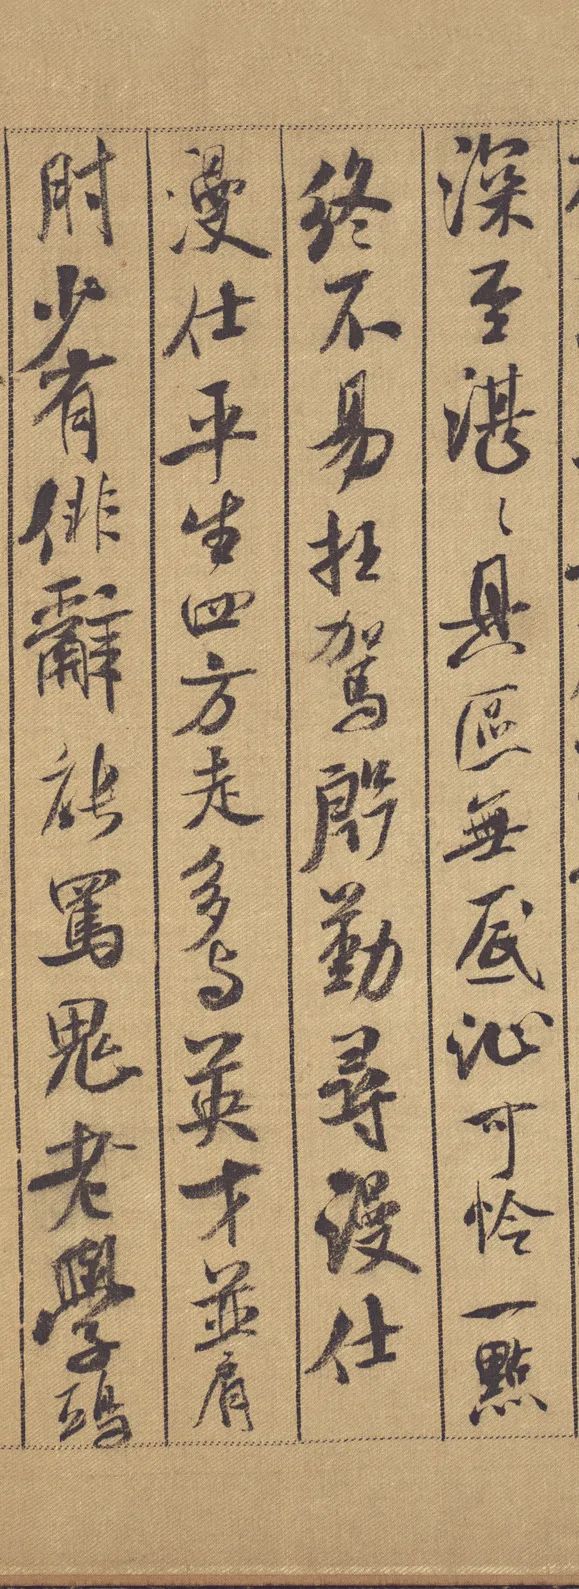 深至湛〻具區無底沚可怜一點
終不易枉駕殷勤尋漫仕
漫仕平生四方走多与英才並肩
肘少有俳辭能罵鬼老學鴟